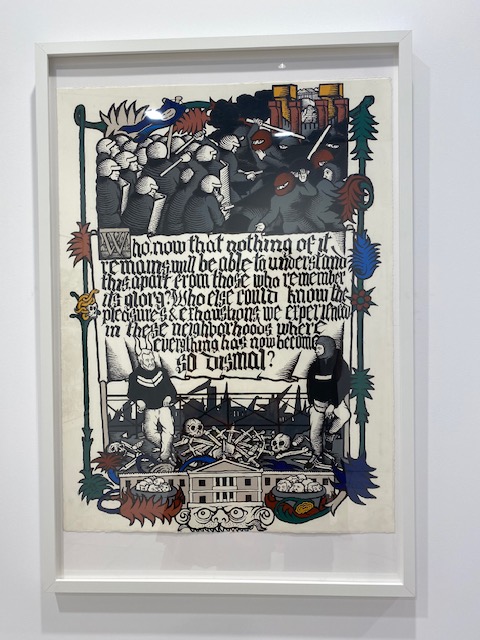 Who, now that nothing of it
remains will be able to understand
this, apart from those who remember
its glory? Who else could know the
pleasures & exhaustions we experienced
in these neighborhoods where
everything has now become
so dismal?